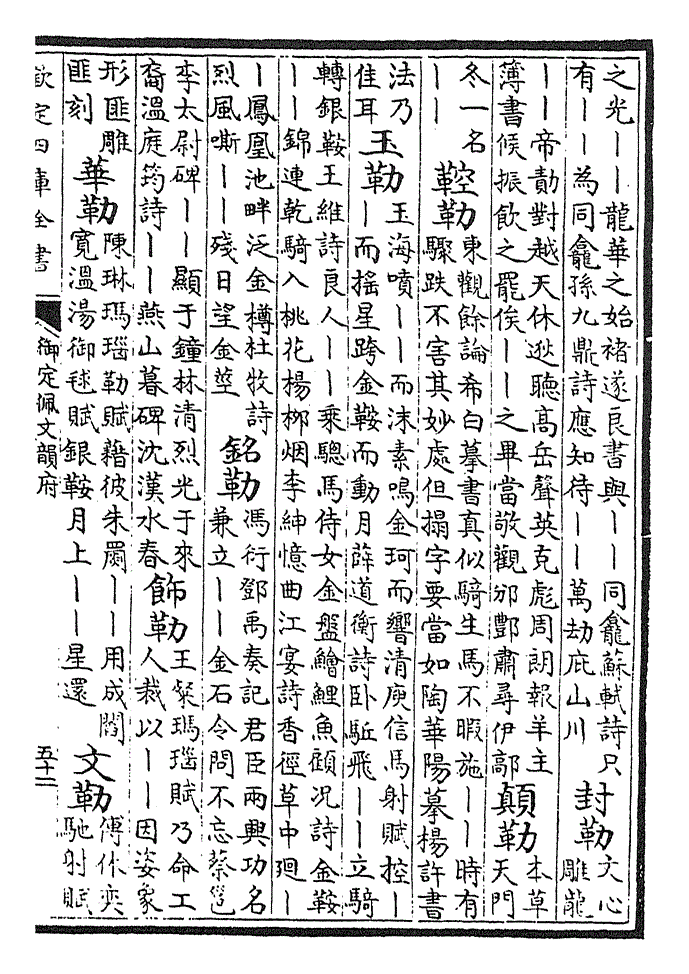 之光——龍華之始褚遂良書與——同龕蘇軾詩只
有——為同龕孫九鼎詩應知待——萬劫庇山川
封勒
文心
雕龍
——帝勣對越天休逖聽高岳聲英克彪周朗報羊主
簿書候振飲之罷俟——之畢當敬觀邠酆肅尋伊鄗
顛勒
本草
天門
冬一名
——
鞚勒
東觀餘論希白摹書真似騎生馬不暇施——時有
驟跌不害其妙處但搨字要當如陶華陽摹楊許書
法乃
佳耳
玉勒
玉海噴——而沫素鳴金珂而響清庾信馬射賦控—
—而搖星跨金鞍而動月薛道衡詩卧駈飛——立騎
轉銀鞍王維詩良人——乘驄馬侍女金盤鱠鯉魚顧况詩金鞍
——錦連乾騎入桃花楊栁烟李紳憶曲江宴詩香徑草中廻—
—鳳凰池畔泛金樽杜牧詩
烈風嘶——殘日望金莖
銘勒
馮衍鄧禹奏記君臣兩興功名
兼立——金石令問不忘蔡邕
李太尉碑——顯于鐘林清烈光于來
裔溫庭筠詩——燕山暮碑沈漢水春
飾勒
王粲瑪瑙賦乃命工
人裁以——因姿象
形匪雕
匪刻
華勒
陳琳瑪瑙勒賦藉彼朱罽——用成閻
寛溫湯御毬賦銀鞍月上——星還
文勒
傅休奕
馳射賦
欽定四庫全書
御定佩文韻府
五十二